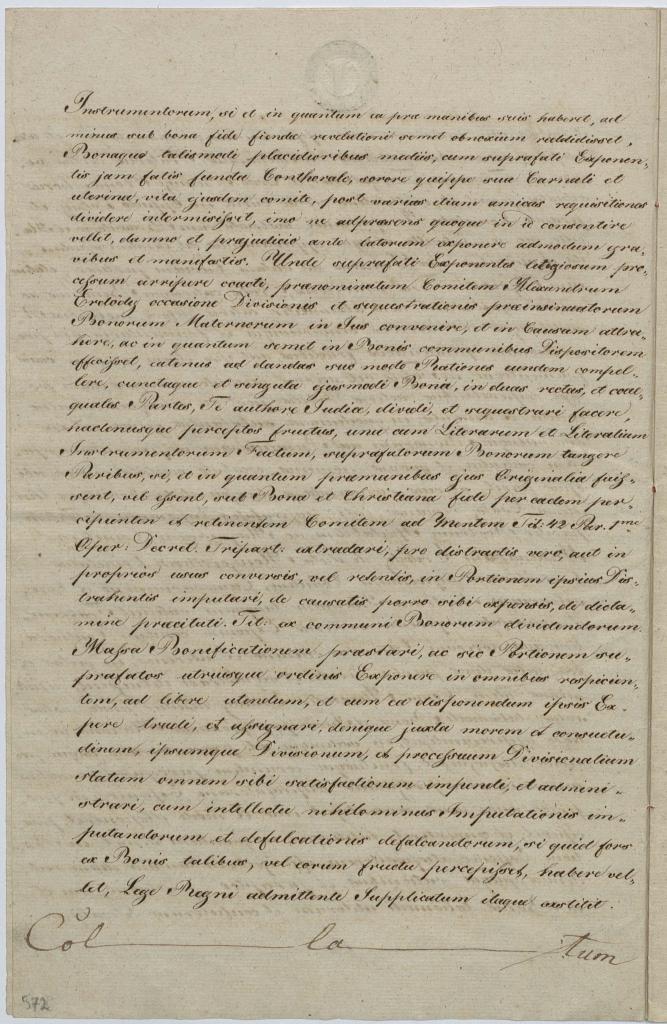 Instrumentorum, si et in quantum ea præ manibus suis haberet, ad
minus sub bona fide fienda revelationi semet obnoxium reddidisset,
Bonaque talismodi placidioribus mediis, cum suprafati Exponen-
tis jam fatis functa Consthorale, sorore quippe sua Carnali et
uterina, vita ejusdem comite, post varias etiam amicas requisitiones
dividere intermisisset, imo ne adpræsens quoque in id consentire
vellet, damno et præjudicio ante latorum exponere admodum gra-
vibus et manifestis. Unde suprafati Exponentes litigiosum pro-
cessum arripere coacti, prænominatum Comitem Alexandrum
Erdődy occasione Divisionis et sequestrationis præinsinuatorum
Bonorum Maternorum in Jus convenire, et in Causam attra-
here, ac in quantum semet in Bonis communibus Dispositorem
effecisset, eatenus ad dandas suo modo Rationes eundem compel-
lere, cunctaque et singula ejusmodi Bona, in duas rectas, et coæ-
quales Partes, Te authore Judice, dividi, et sequestrari facere,
hactenusque perceptos fructus, una cum Literarum et Literalium
Instrumentorum Factum, suprafatorum Bonorum tangere
Paribus, si, et in quantum præmanibus ejus Originalia fuis-
sent, vel essent, sub Bona et Christiana fide per eadem per-
cipientem et retinentem Comitem ad Mentem Tit: 42 Par. 1mæ
Oper: Decret. Tripart: extradari, pro distractis vero, aut in
proprios usus conversis, vel retentis, in Portionem ipsius Dis-
trahentis imputari, de causatis porro sibi expensis, de dicta-
mine præcitati Tit: ex communi Bonorum dividendorum
Massa Bonificationem præstari, ac sic Portionem su-
prafatos utriusque ordinis Exponere in omnibus respicien-
tem, ad libere utendum, et cum ea disponendum ipsis Ex-
pere tradi, et assignari, denique juxta morem et consuetu-
dinem, ipsumque Divisionum, et processuum Divisionalium
statum omnem sibi satisfactionem impendi, et admini-
strari, cum intellectu nihilominus Imputationis im-
putandorum et defalcationis defalcandorum, si quid fors
ex Bonis talibus, vel eorum fructu percepisset, habere vel-
let, Lege Regni admittente Supplicatum itaque exstitit.
Col la tum
572